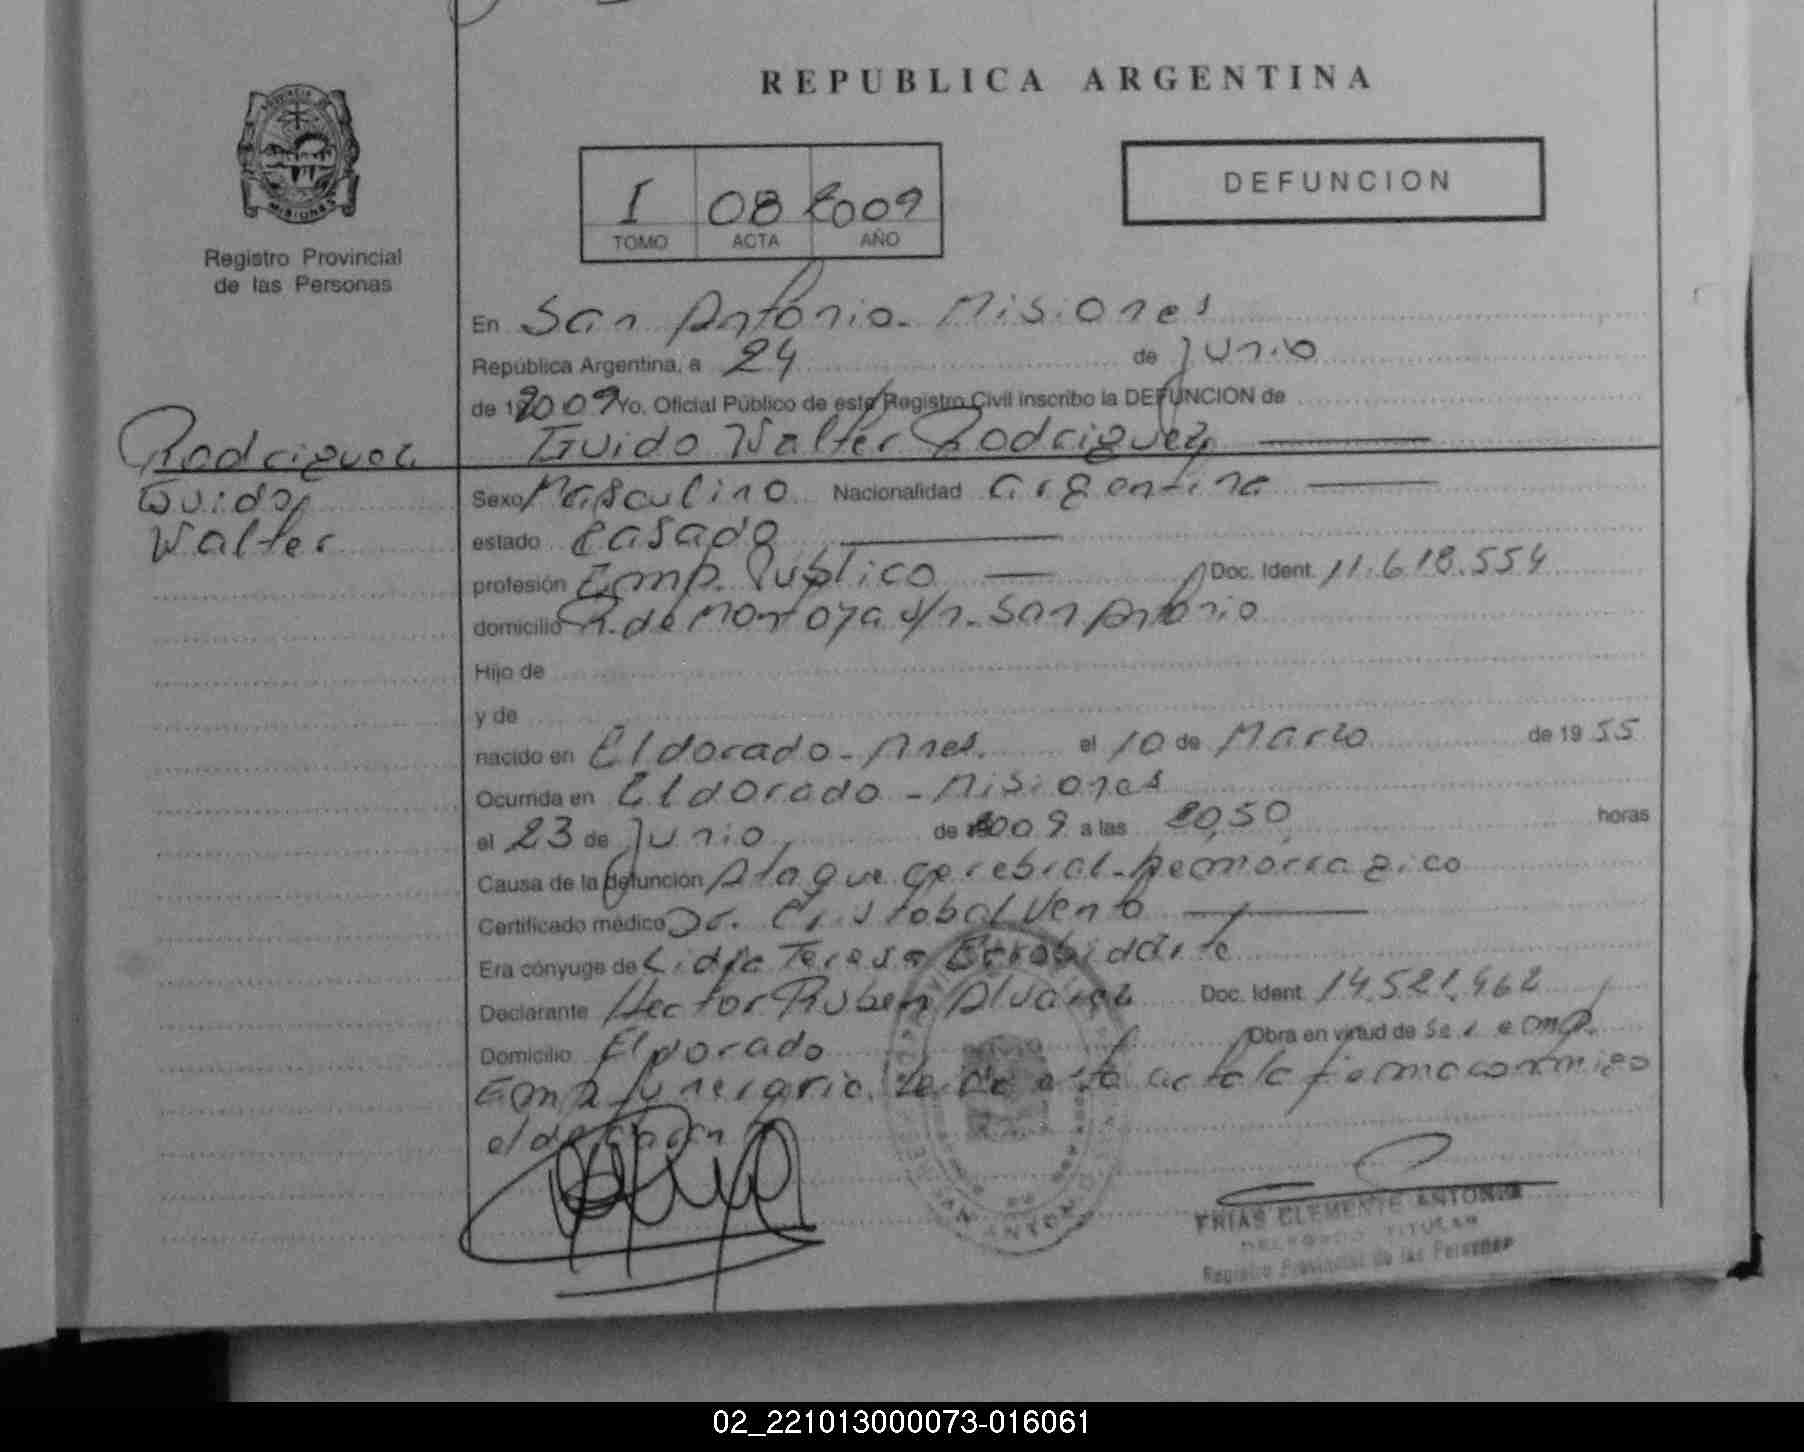 REPUBLICA ARGENTINA
PROVINCIA DE
MISIONES
Registro Provincial
de las Personas
I 08 2009
TOMO ACTA AÑO
DEFUNCION
En San Antonio - Misiones
República Argentina, a 24 de Junio
de 2009 Yo, Oficial Público de este Registro Civil inscribo la DEFUNCION de
Guido Walter Rodriguez
Rodriguez
Guido
Walter
Sexo Masculino Nacionalidad argentina
estado casado
profesión Emp. Publico Doc. Ident. 11.618.554
domicilio R. de Montoya s/n. San Antonio
Hijo de
y de
nacido en Eldorado - Mnes. el 10 de Marzo de 1955
Ocurrida en Eldorado - Misiones
el 23 de Junio de 2009 a las 20,50 horas
Causa de la defunción Ataque cerebral-hemorragico
Certificado médico Dr. Cristobal Vento
Era cónyuge de Lidia Teresa
Declarante Hector Ruben Alvarez Doc. Ident. 14.521.462
Domicilio Eldorado Obra en virtud de ser emp.
Emp. funeraria. Leida esta acta la firma conmigo
el
SAN ANTONIO
FRIAS CLEMENTE ANTONIO
DELEGADO TITULAR
Registro Provincial de las Personas
02_221013000073-016061